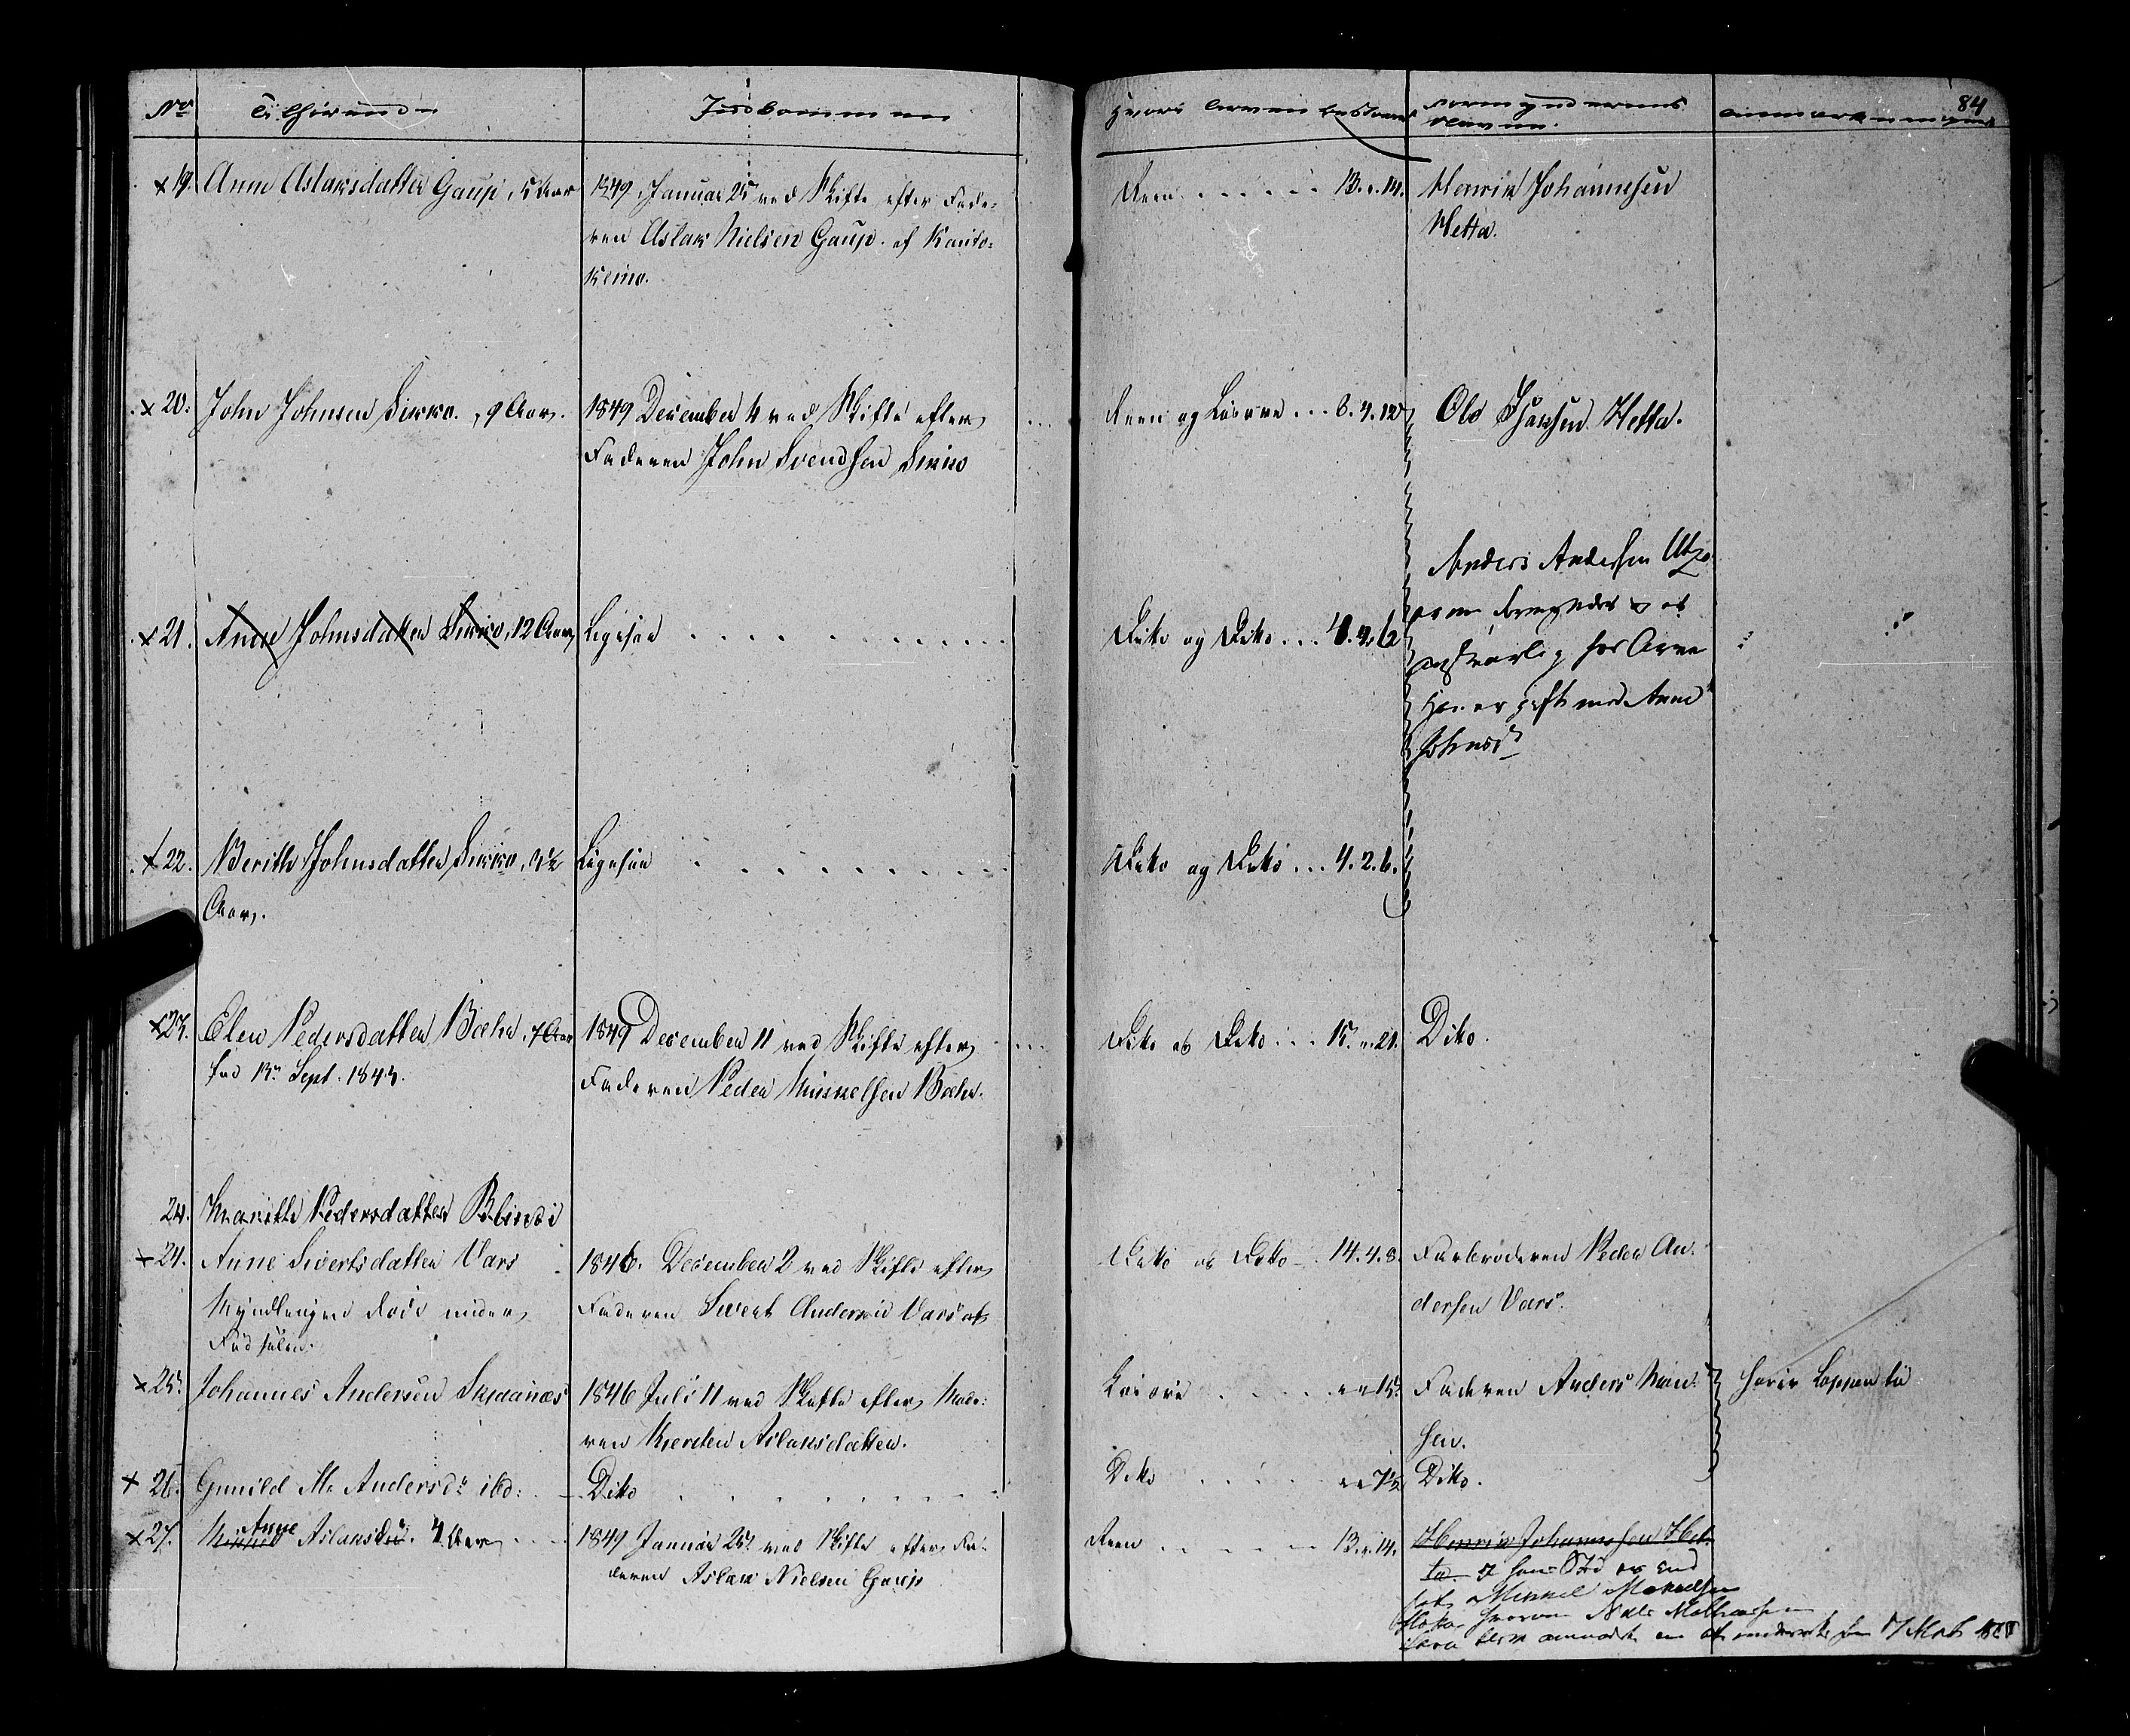 84
No
Tilhørende
Indkommen
Hvori Arven bestaaer
Formynderens
Navn.
Anmærkninger
x 19. Anne Aslaksdatter Gaup, 5 Aar
1849, Januar 25 ved Skifte efter Fade-
ren Aslak Nielsen Gaup. af Kauto-
keino.
Reen . . . . . . 13. „ 14.
Henrik Johannesen
Hetta.
x 20. John Johnsen Sikko. , 9 Aar.
1849 December 4 ved Skifte efter
Faderen John Svendsen Sikko
Reen og Løsøre . . . 8. 4. 12
Ole Isaksen Hetta.
x 21. Anne Johnsdatter Sikko, 12 Aar,
Ligesaa . . . . . . . . . .
Ditto og Ditto . . . 4. 2. 6
Anders Andersen Utzi
er nu Formynder og
ansvarlig for Arven
Han er gift med Anne
Johnsd
x 22. Berith Johnsdatter Sikko, 3½
Aar.
Ligesaa . . . . . . . . .
Ditto og Ditto . . . 4. 2. 6.
x 23. Elen Pedersdatter Bæhr, 7 Aar
fød 13 Sept. 1843.
1849 December 11 ved Skifte efter
Faderen Peder Mikkelsen Bæhr.
Ditto og Ditto . . . 15. „ 21.
Dito.
24. Marithe Pedersdatter Blindi
x 24. Anne Sivertsdatter Vars
Myndlingen døde under
Fødselen.
1846. December 2 ved Skifte efter
Faderen Sivert Andersen Vars
Ditto og Ditto - 14. 4. 8.
Farbroderen Peder An-
dersen Vars.
x 25. Johannes Andersen Skjaanæs
1846 Juli 11 ved Skifte efter Mode-
ren Kjersten Aslaksdatter.
Løsøre . . . . „ „ 15.
Faderen Anders
sen.
x 26. Gunild M. Andersdr ibd:
Dito . . . . . . . . .
Ditto . . . . „ „ 7½
Ditto.
x 27. Mikkel Anne Aslaksdr. 4 Aar . . .
1849 Januar 25 ved Skifte efter Fa-
deren Aslak Nielsen Gaup
Reen . . . . . 13. „ 14.
Henrik Johannesen Het-
ta.
Mikkel
Niels